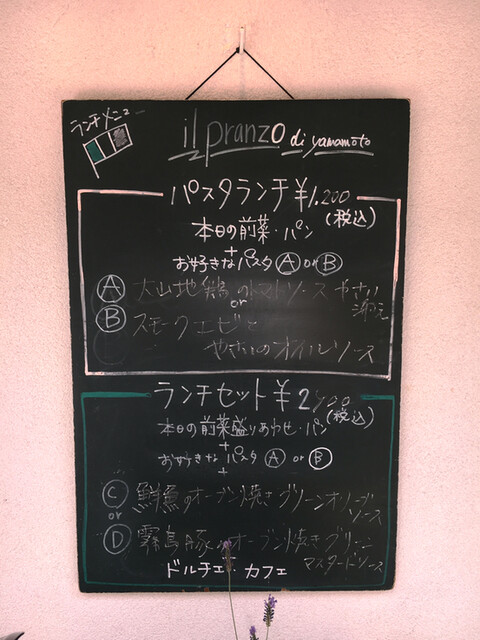 ランチメニュー
il pranzo di yamamoto
パスタランチ ¥1,200
(税込)
本日の前菜・パン
+
お好きなパスタ Ⓐ or Ⓑ
Ⓐ 大山地鶏のトマトソース やさい
添え
or
Ⓑ スモークエビと
やさいのオイルソース
ランチセット ¥2,400
(税込)
本日の前菜盛りあわせ・パン
+
お好きなパスタ Ⓐ or Ⓑ
+
Ⓒ 鮮魚のオーブン焼き グリーンオリーブ
ソース
or
Ⓓ 霧島豚のオーブン焼き グリーン
マスタードソース
ドルチェ・カフェ